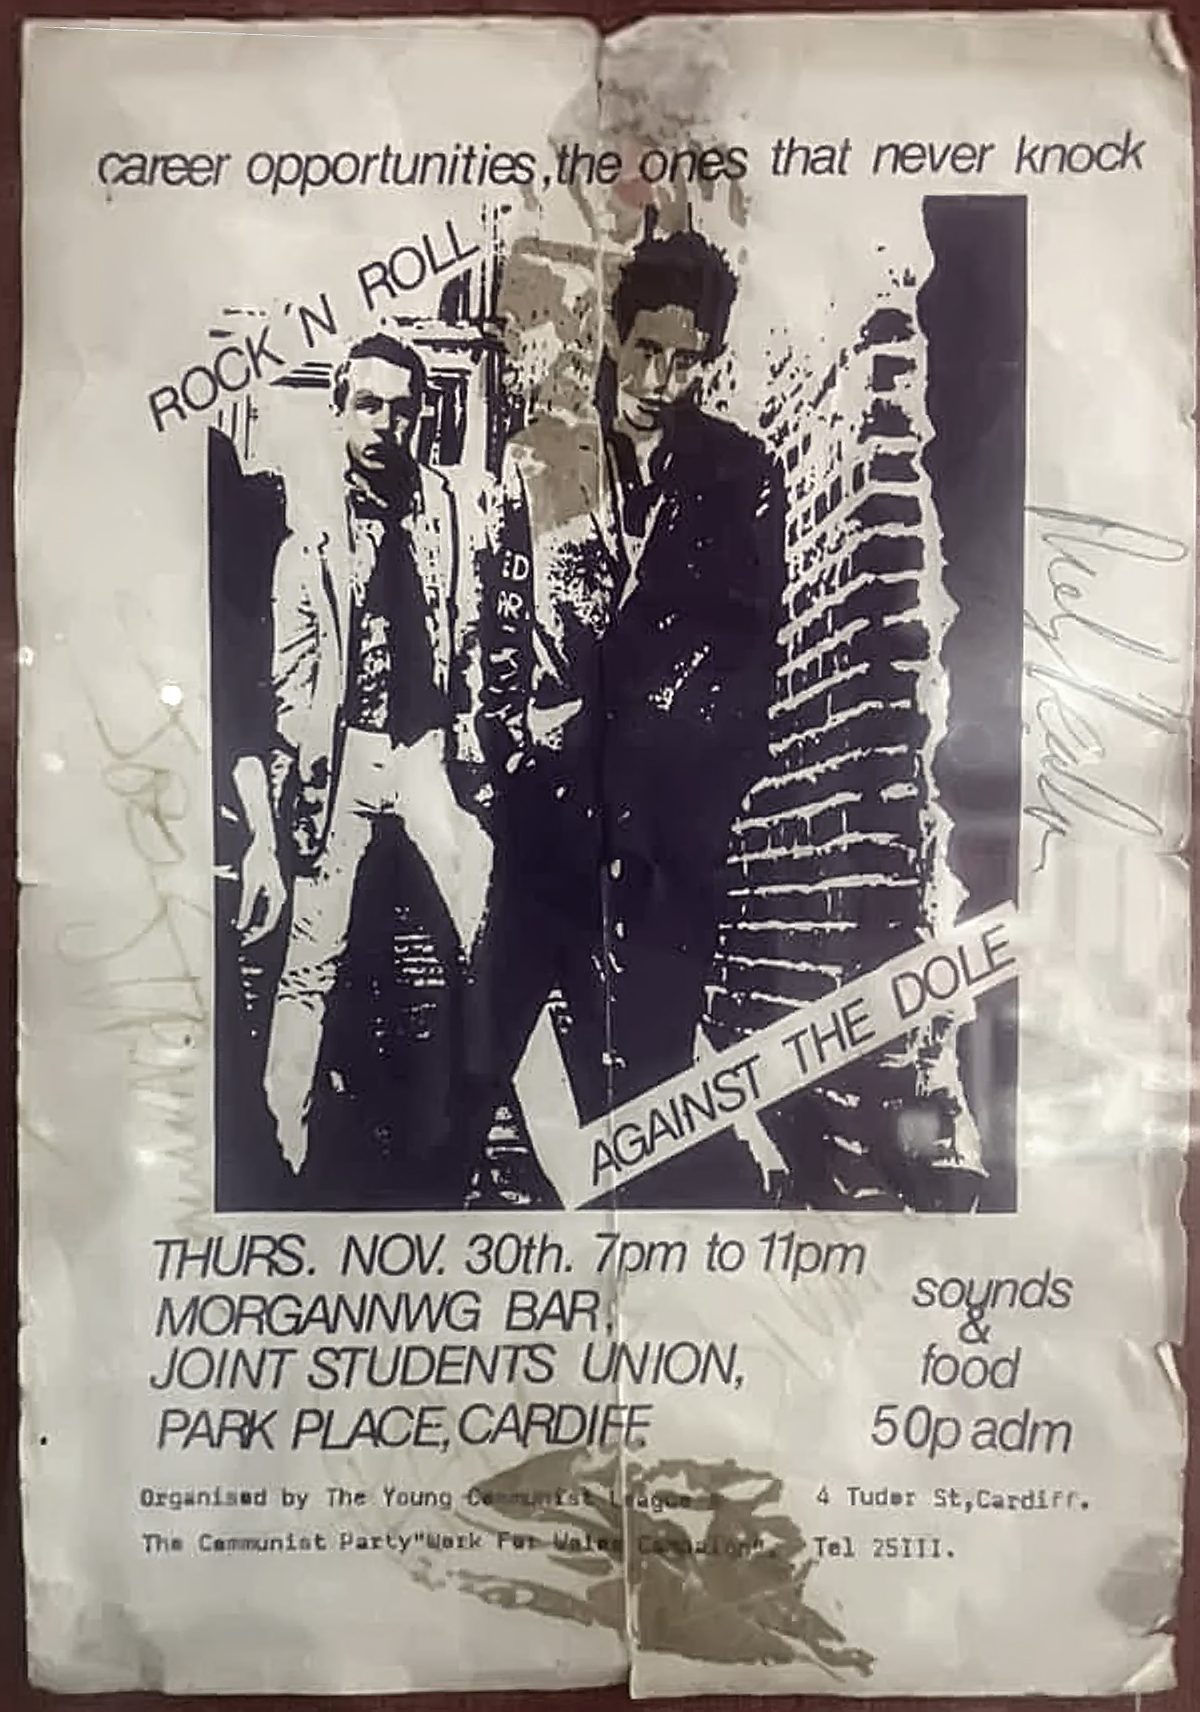 career opportunities, the ones that never knock
ROCK 'N ROLL
ED
AR
AGAINST THE DOLE
THURS. NOV. 30th. 7pm to 11pm
MORGANNWG BAR,
JOINT STUDENTS UNION,
PARK PLACE, CARDIFF.
sounds
&
food
50p adm
Organised by The Young Communist League &
The Communist Party "Work For Wales Campaign".
4 Tudor St, Cardiff.
Tel 25III.